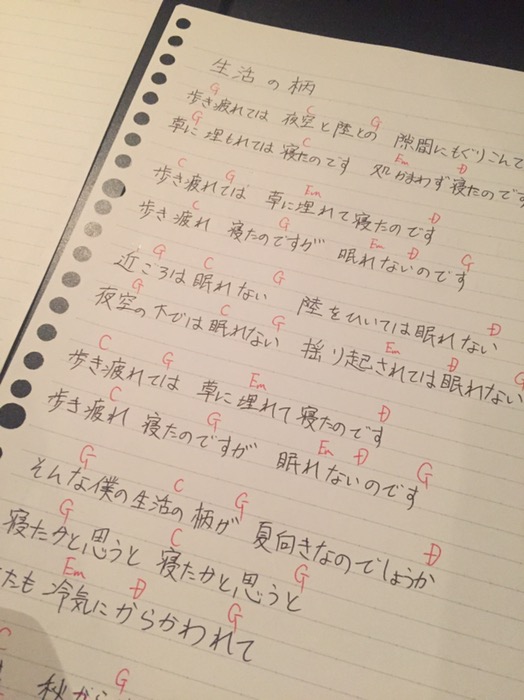 生活の柄
G C G
歩き疲れては 夜空と陸との 隙間にもぐりこんで
G C Em D
草に埋もれては 寝たのです 処かまわず寝たのです
C G Em D
歩き疲れては 草に埋れて寝たのです
C G Em D G
歩き疲れ 寝たのですが 眠れないのです
G C G D
近ごろは眠れない 陸をひいては眠れない
G C G Em D G
夜空の下では眠れない 揺り起されては眠れない
C G Em D
歩き疲れては 草に埋れて寝たのです
C G Em D G
歩き疲れ 寝たのですが 眠れないのです
G C G D
そんな僕の生活の柄が 夏向きなのでしょうか
G C G
寝たかと思うと 寝たかと思うと
Em D G
たも冷気にからかわれて
C G
秋から